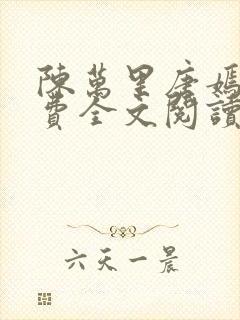 陳萬里唐嫣
費全文閱讀
六天一晨